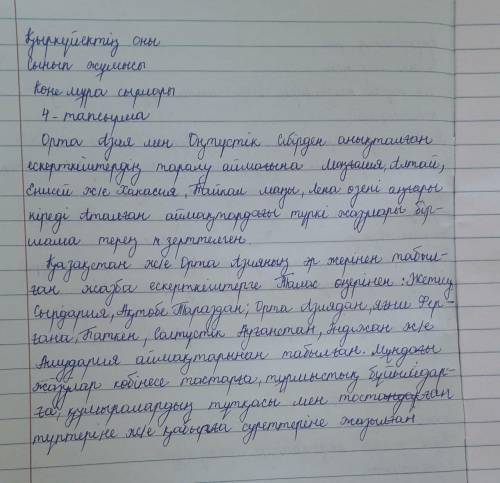 Қыркүйектің оны
Сынып жұмысы
Көне мұра сырлары
4-тапсырма
Орта Азия мен Оңтүстік Сібірден анықталған
ескерткіштердің таралу аймағына Моңғолия, Алтай,
Енисей ж/е Хакасия, Байкал маңы, Лена өзені аңғары
кіреді Аталған аймақтардағы түркі жазулары бір-
шама терең зерттелген.
Қазақстан ж/е Орта Азияның әр жерінен табыл-
ған жазба ескерткіштерге Талас өңірінен: Жетісу
Сырдария, Ақтөбе Тараздан; Орта Азиядан, яғни Фер-
ғана, Баткен, Солтүстік Ауғанстан, Әндіжан ж/е
Амудария аймақтарынан табылған. Мұндағы
жазулар көбінесе тастарға, тұрмыстық бұйымдар-
ға, құмыралардың тұтқасы мен
түптеріне ж/е қабырға суреттеріне жазылған